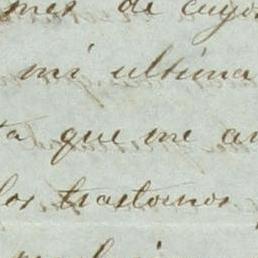 mes de cuyo
mi ultima
que me
los trastornos